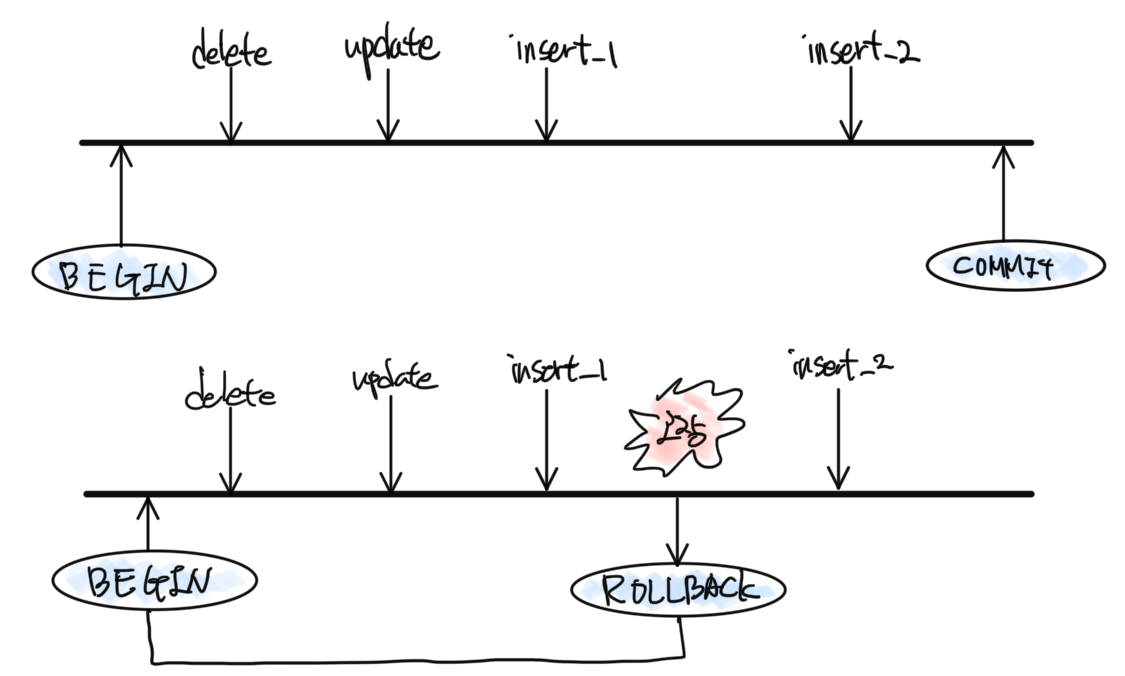 delete
update
insert_1
insert_2
BEGIN
COMMIT
delete
update
insert_1
insert_2
BEGIN
ROLLBACK